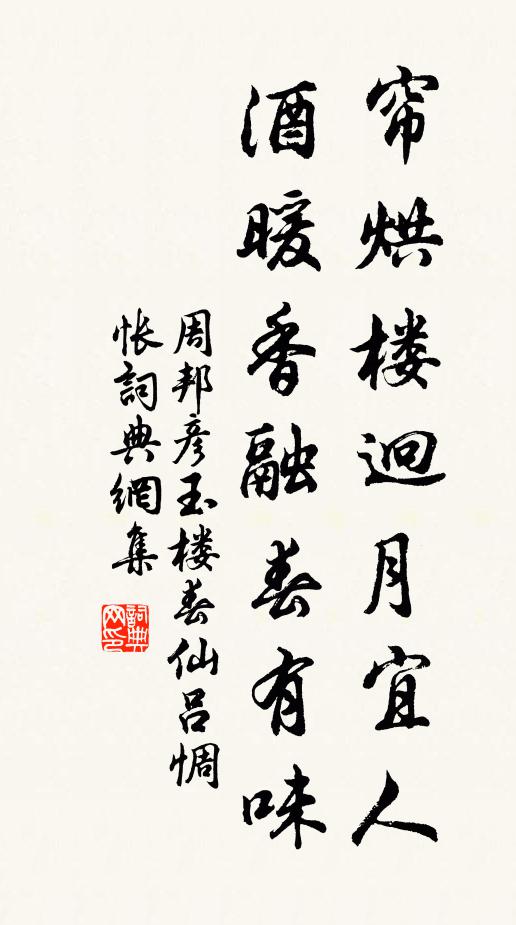 帘烘楼迥月宜人
酒暖香融春有味
周邦彦玉楼春仙吕惆
怅詞典網集
詞典
网印